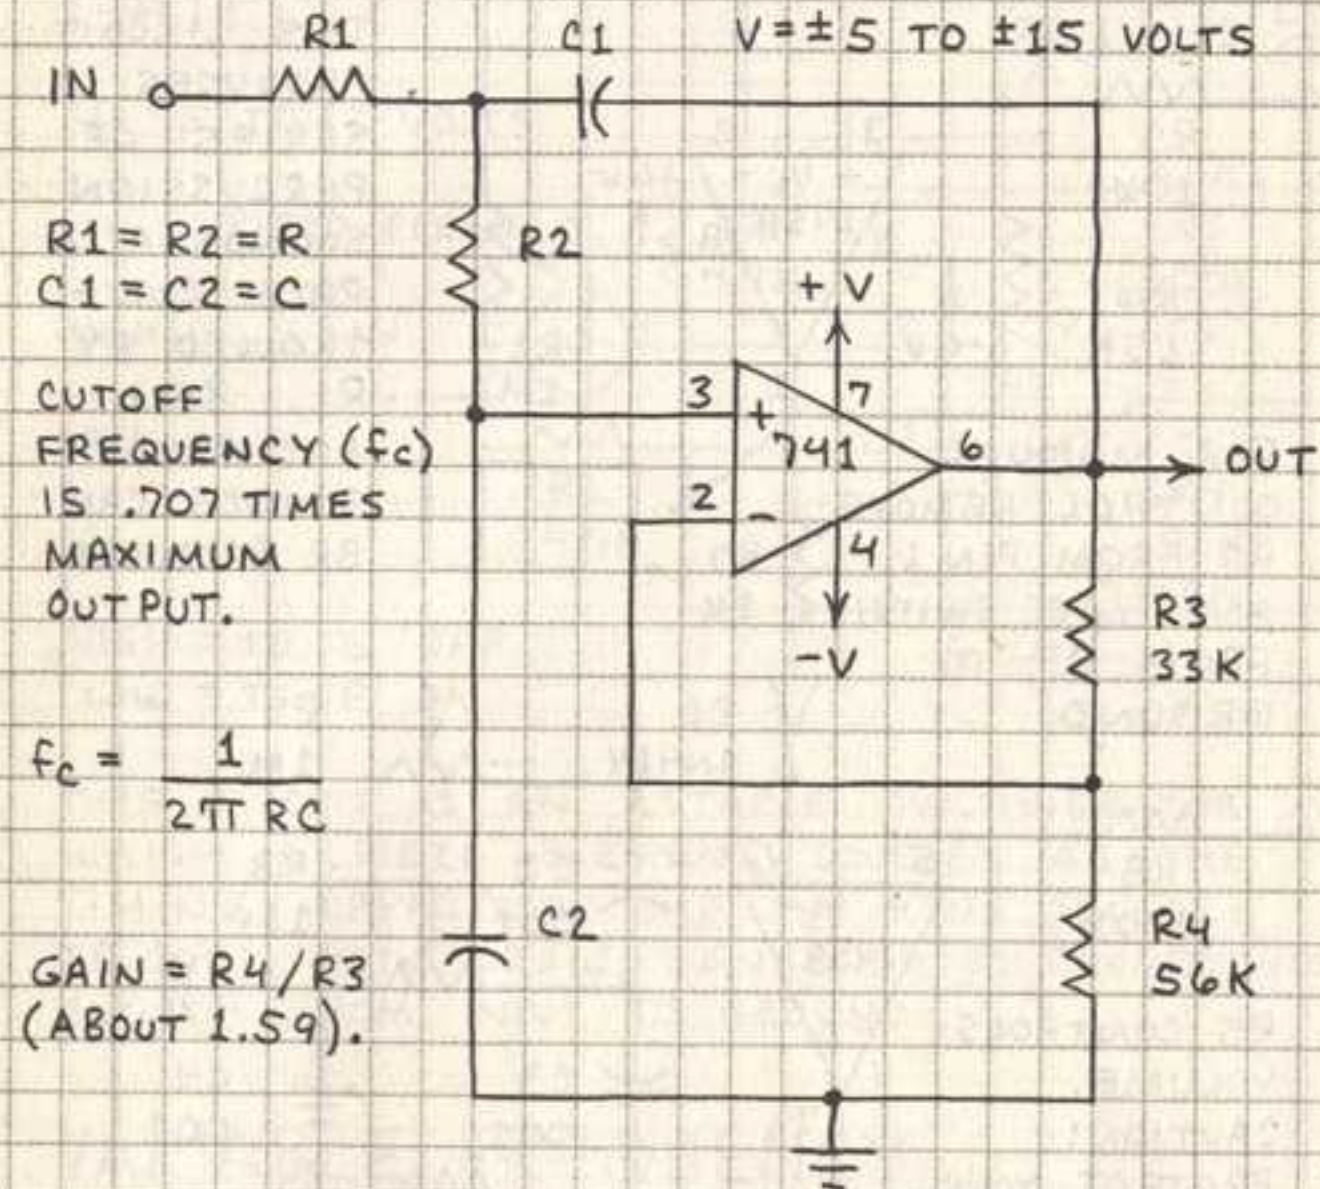 R1
C1
V = ±5 TO ±15 VOLTS
IN
R1 = R2 = R
C1 = C2 = C
R2
+V
CUTOFF
FREQUENCY (fc)
IS .707 TIMES
MAXIMUM
OUTPUT.
3
+
7
741
6
OUT
2
-
4
-V
R3
33K
fc = 1
2π RC
C2
R4
56K
GAIN = R4/R3
(ABOUT 1.59).